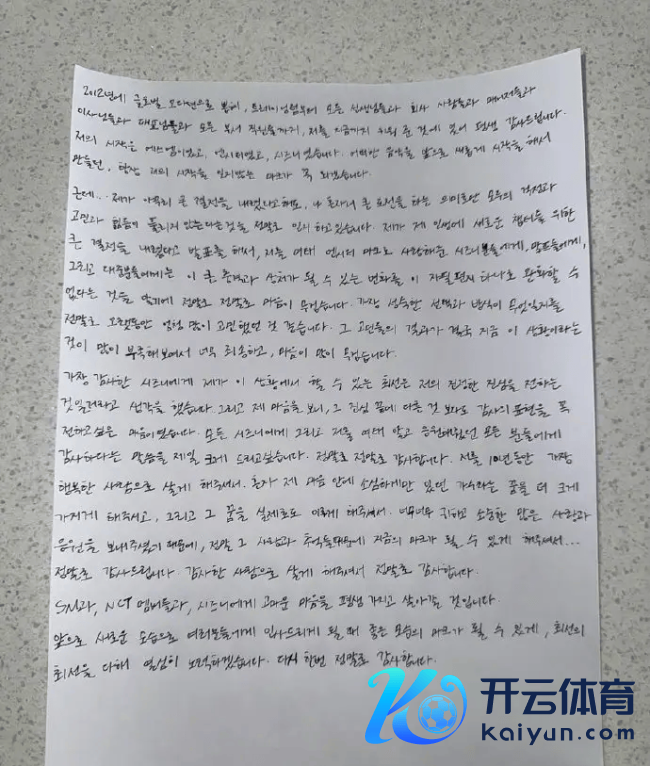 2012년에 글로벌 오디션으로 뽑혀, 트레이닝팀부터 모든 선생님들과 회사 사람들과 매니저들과
이사님들과 대표님들과 모든 부서 직원들까지, 저를 지금까지 키워 준 것에 있어 평생 감사드립니다.
저의 시작은 에스엠이었고, 엔시티였고, 시즈니였습니다. 어떠한 음악을 앞으로 새롭게 시작을 해서
만들던, 항상 저의 시작을 잊지않는 마크가 꼭 되겠습니다.
근데.. 제가 아무리 큰 결정을 내렸다고해도, 나 혼자의 큰 도전을 하는 의미로만 모두의 걱정과
고민과 힘듦이 풀리지 않는다는것을 정말로 인지하고있습니다. 제가 제 인생에 새로운 챕터를 위한
큰 결정을 내렸다고 발표를 해서, 저를 여태 엔시티 마크로 사랑해준 시즈니분들에게, 멤프들에게,
그리고 대중분들에게는 이 큰 충격과 상처가 될 수 있는 변화를 이 자필편지 하나로 완화할 수
없다는 것을 알기에 정말로 정말로 마음이 무겁습니다. 가장 성숙한 선택과 방식이 무엇일지를
정말로 오랫동안 엄청 많이 고민했던 것 같습니다. 그 고민들의 결과가 결국 지금 이 상황이라는
것이 많이 부족해보여서 너무 죄송하고, 마음이 많이 무겁습니다.
가장 감사한 시즈니에게 제가 이 상황에서 할 수 있는 최선은 저의 진정한 진심을 전하는
것일거라고 생각을 했습니다. 그리고 제 마음을 보니, 그 진심 끝에 다른 것 보다도 감사의 표현을 꼭
전하고싶은 마음이었습니다. 모든 시즈니에게 그리고 저를 여태 알고 응원해주셨던 모든 분들에게
감사하다는 말씀을 제일 크게 드리고싶습니다. 정말로 정말로 감사합니다. 저를 10년동안 가장
행복한 사람으로 살게 해주셔서. 혼자 제 마음 안에 소심하게만 있던 가수라는 꿈을 더 크게
가지게 해주시고, 그리고 그 꿈을 실제로도 이루게 해주셔서. 너무너무 귀하고 소중한 많은 사랑과
응원을 보내주셨기 때문에, 정말 그 사랑과 추억들때문에 지금의 마크가 될 수 있게 해주셔서...
정말로 감사드립니다. 감사한 사람으로 살게 해주셔서 정말로 감사합니다.
SM과, NCT 멤버들과, 시즈니에게 고마운 마음을 평생 가지고 살아갈 것입니다.
앞으로 새로운 모습으로 여러분들에게 인사드리게 될 때 좋은 모습의 마크가 될 수 있게, 최선의
최선을 다해 열심히 노력하겠습니다. 다시 한번 정말로 감사합니다.
开云体育
kaiyun.com